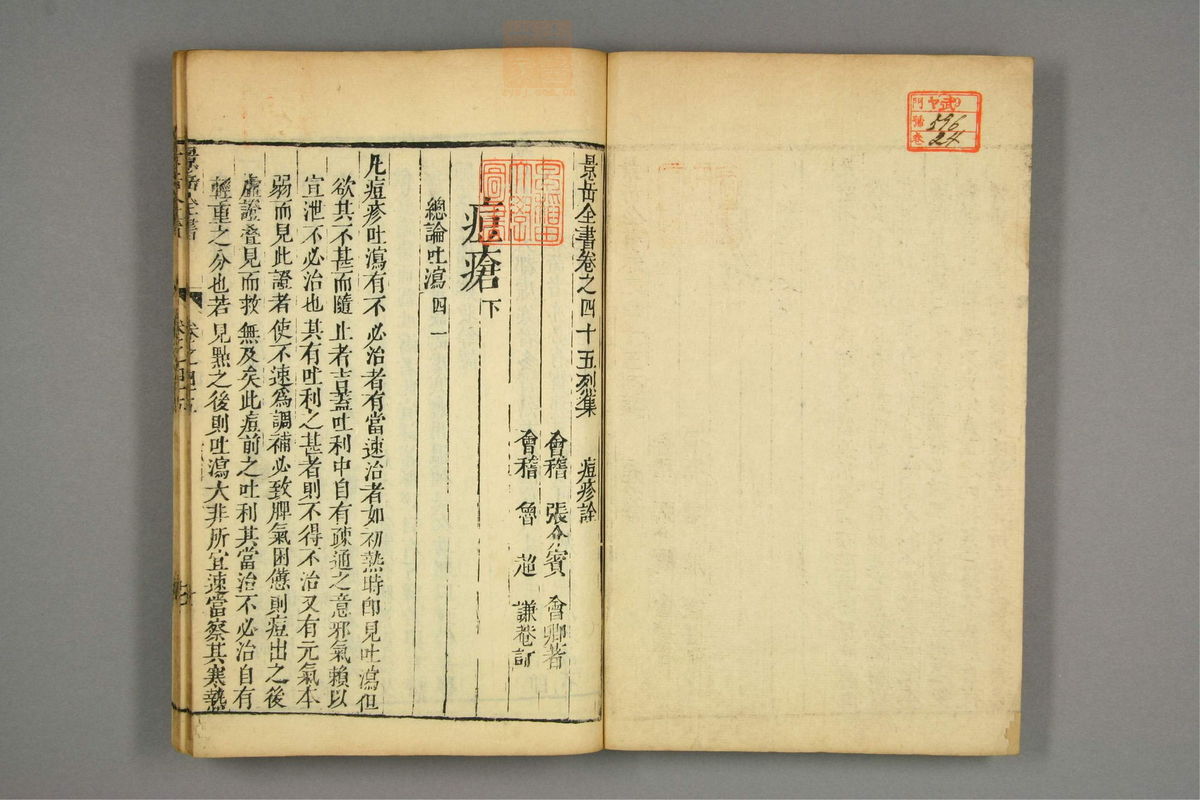 門 武
號 596
卷 24
景岳全書卷之四十五烈集 痘疹詮
會稽 張介賓 會卿著
會稽 魯超 謙菴訂
痘瘡下
總論吐瀉 四一
凡痘疹吐瀉有不必治者有當速治者如初熱時卽見吐瀉但
欲其不甚而隨止者吉蓋吐利中自有疎通之意邪氣賴以
宣泄不必治也其有吐利之甚者則不得不治又有元氣本
弱而見此證者使不速爲調補必致脾氣困憊則痘出之後
虛證叠見而救無及矣此痘前之吐利其當治不必治自有
輕重之分也若見點之後則吐瀉大非所宜速當察其寒熱
景岳全書 卷之四十五